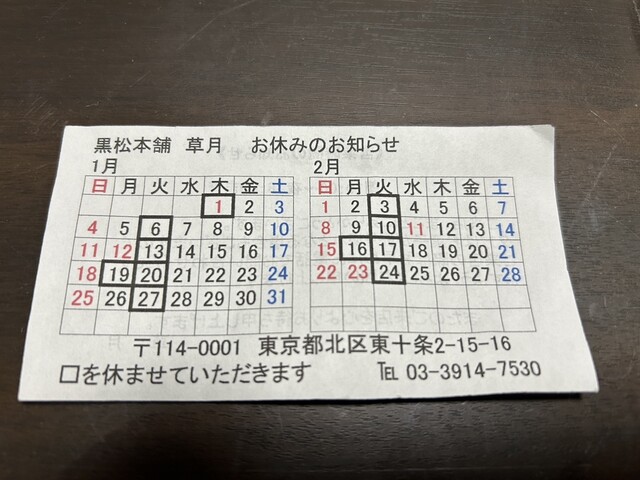 黒松本舗 草月 お休みのお知らせ
1月
2月
日 月 火 水 木 金 土
1 2 3
4 5 6 7 8 9 10
11 12 13 14 15 16 17
18 19 20 21 22 23 24
25 26 27 28 29 30 31
日 月 火 水 木 金 土
1 2 3 4 5 6 7
8 9 10 11 12 13 14
15 16 17 18 19 20 21
22 23 24 25 26 27 28
〒114-0001 東京都北区東十条2-15-16
□を休ませていただきます ℡ 03-3914-7530